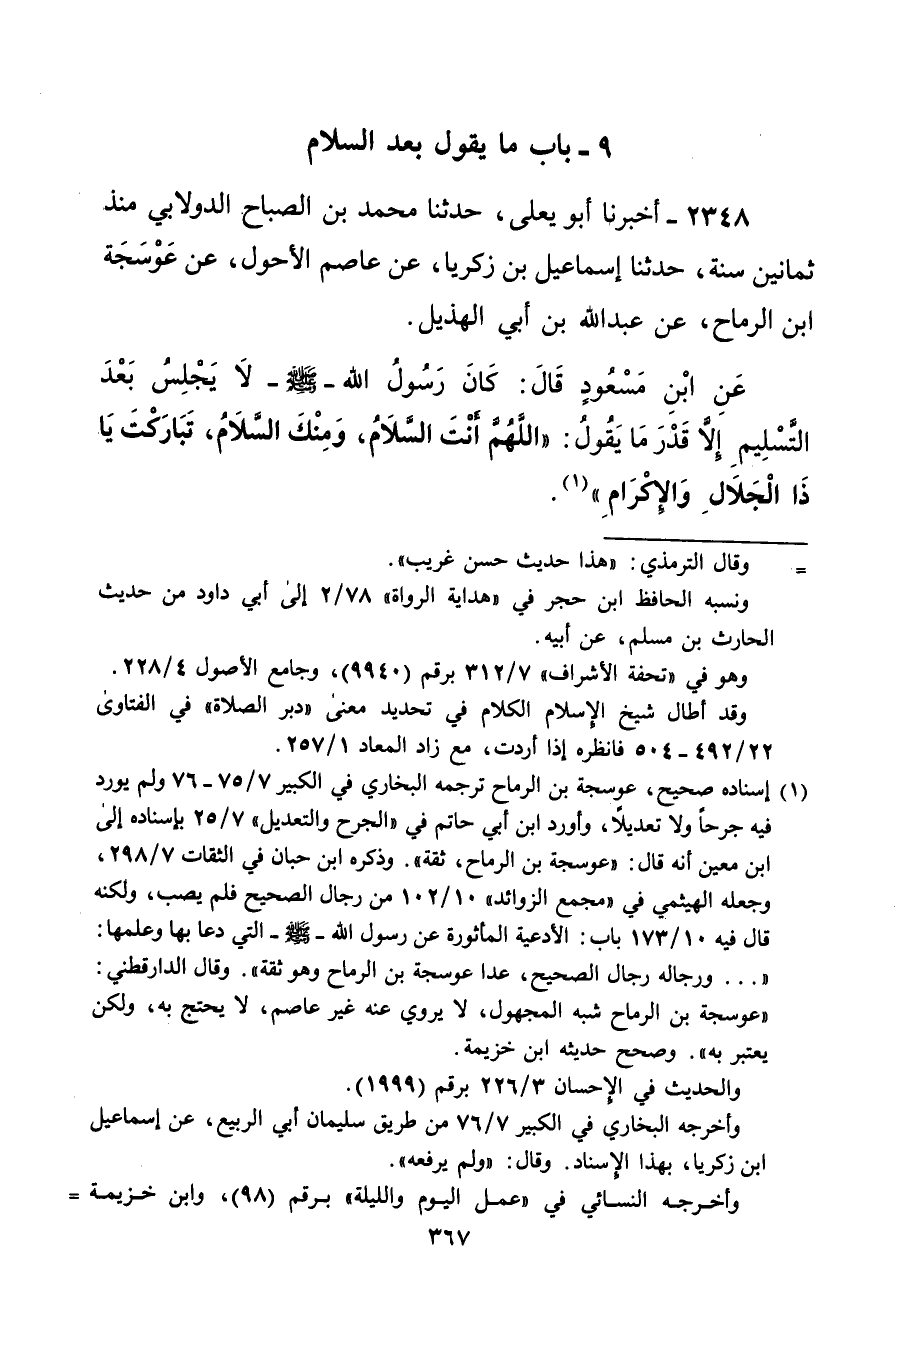 ٩ ـ باب ما يقول بعد السلام
٢٣٤٨ ـ أخبرنا أبو يعلى، حدثنا محمد بن الصباح الدولابي منذ
ثمانين سنة، حدثنا إسماعيل بن زكريا، عن عاصم الأحول، عن عَوْسَجَة
ابن الرماح، عن عبدالله بن أبي الهذيل.
عَنِ ابْنِ مَسْعُودٍ قَالَ: كَانَ رَسُولُ الله ـ ﷺ ـ لَا يَجْلِسُ بَعْدَ
التَّسْلِيمِ إِلَّا قَدْرَ مَا يَقُولُ: «اللَّهُمَّ أَنْتَ السَّلَامُ، وَمِنْكَ السَّلَامُ، تَبَارَكْتَ يَا
ذَا الْجَلَالِ وَالإِكْرَامِ»(١).
= وقال الترمذي: «هذا حديث حسن غريب».
ونسبه الحافظ ابن حجر في «هداية الرواة» ٢/٧٨ إلىٰ أبي داود من حديث
الحارث بن مسلم، عن أبيه.
وهو في «تحفة الأشراف» ٣١٢/٧ برقم (٩٩٤٠)، وجامع الأصول ٢٢٨/٤.
وقد أطال شيخ الإسلام الكلام في تحديد معنىٰ «دبر الصلاة» في الفتاوىٰ
٤٩٢/٢٢ ـ ٥٠٤ فانظره إذا أردت، مع زاد المعاد ٢٥٧/١.
(١) إسناده صحيح، عوسجة بن الرماح ترجمه البخاري في الكبير ٧٥/٧ ـ ٧٦ ولم يورد
فيه جرحاً ولا تعديلاً، وأورد ابن أبي حاتم في «الجرح والتعديل» ٢٥/٧ بإسناده إلىٰ
ابن معين أنه قال: «عوسجة بن الرماح، ثقة». وذكره ابن حبان في الثقات ٢٩٨/٧،
وجعله الهيثمي في «مجمع الزوائد» ١٠٢/١٠ من رجال الصحيح فلم يصب، ولكنه
قال فيه ١٧٣/١٠ باب: الأدعية المأثورة عن رسول الله ـ ﷺ ـ التي دعا بها وعلمها:
«... ورجاله رجال الصحيح، عدا عوسجة بن الرماح وهو ثقة». وقال الدارقطني:
«عوسجة بن الرماح شبه المجهول، لا يروي عنه غير عاصم، لا يحتج به، ولكن
يعتبر به». وصحح حديثه ابن خزيمة.
والحديث في الإحسان ٢٢٦/٣ برقم (١٩٩٩).
وأخرجه البخاري في الكبير ٧٦/٧ من طريق سليمان أبي الربيع، عن إسماعيل
ابن زكريا، بهذا الإسناد. وقال: «ولم يرفعه».
وأخرجه النسائي في «عمل اليوم والليلة» برقم (٩٨)، وابن خزيمة =
٣٦٧